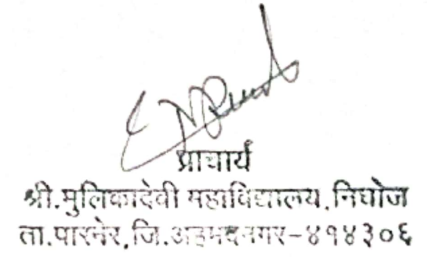 प्राचार्य
श्री.मुलिकादेवी महाविद्यालय,निघोज
ता.पारनेर,जि.अहमदनगर-४१४३०६